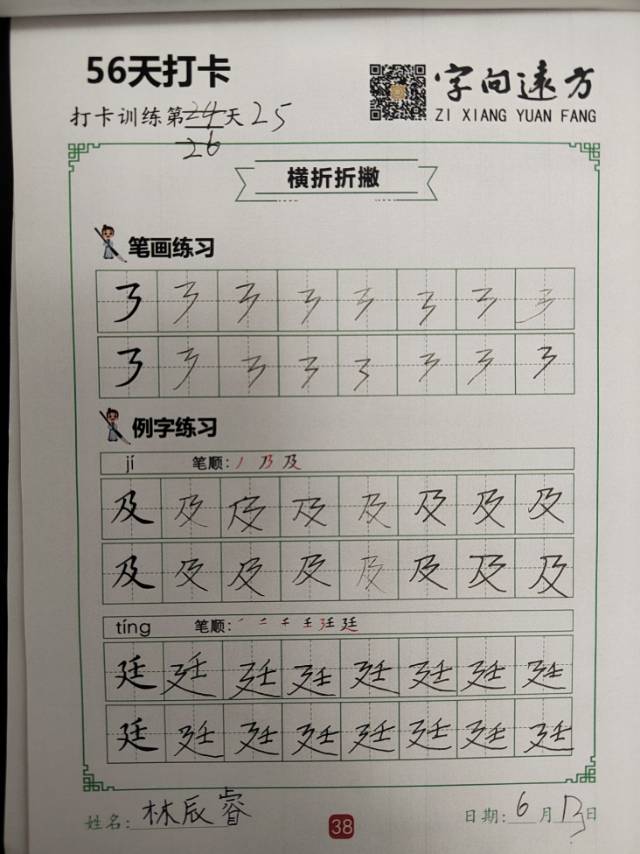 56天打卡
字向远方
打卡训练第24天25
ZI XIANG YUAN FANG
26
横折折撇
笔画练习
例字练习
jí 笔顺: 丿 乃 及
及 及 及 及 及 及 及 及
及 及 及 及 及 及 及 及
tíng 笔顺: 壬 廷
廷 廷 廷 廷 廷 廷 廷 廷
廷 廷 廷 廷 廷 廷 廷 廷
姓名: 林辰睿
日期: 6月13日
38